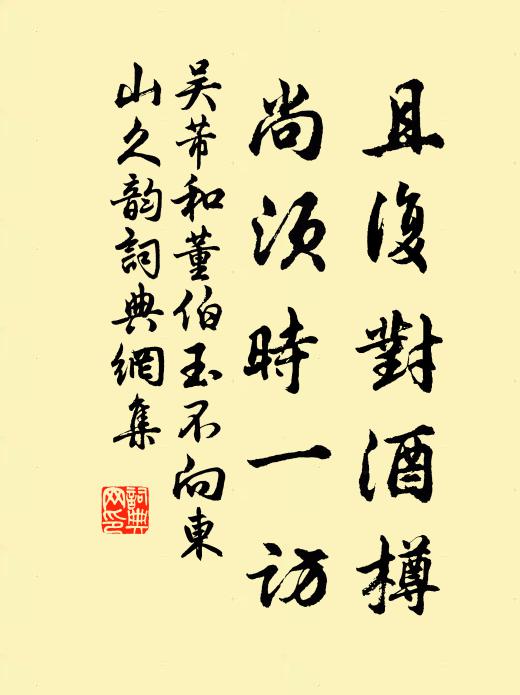 且復對酒樽
尚須時一訪
吳芾和董伯玉不向東
山久韵詞典網集
詞典
网印